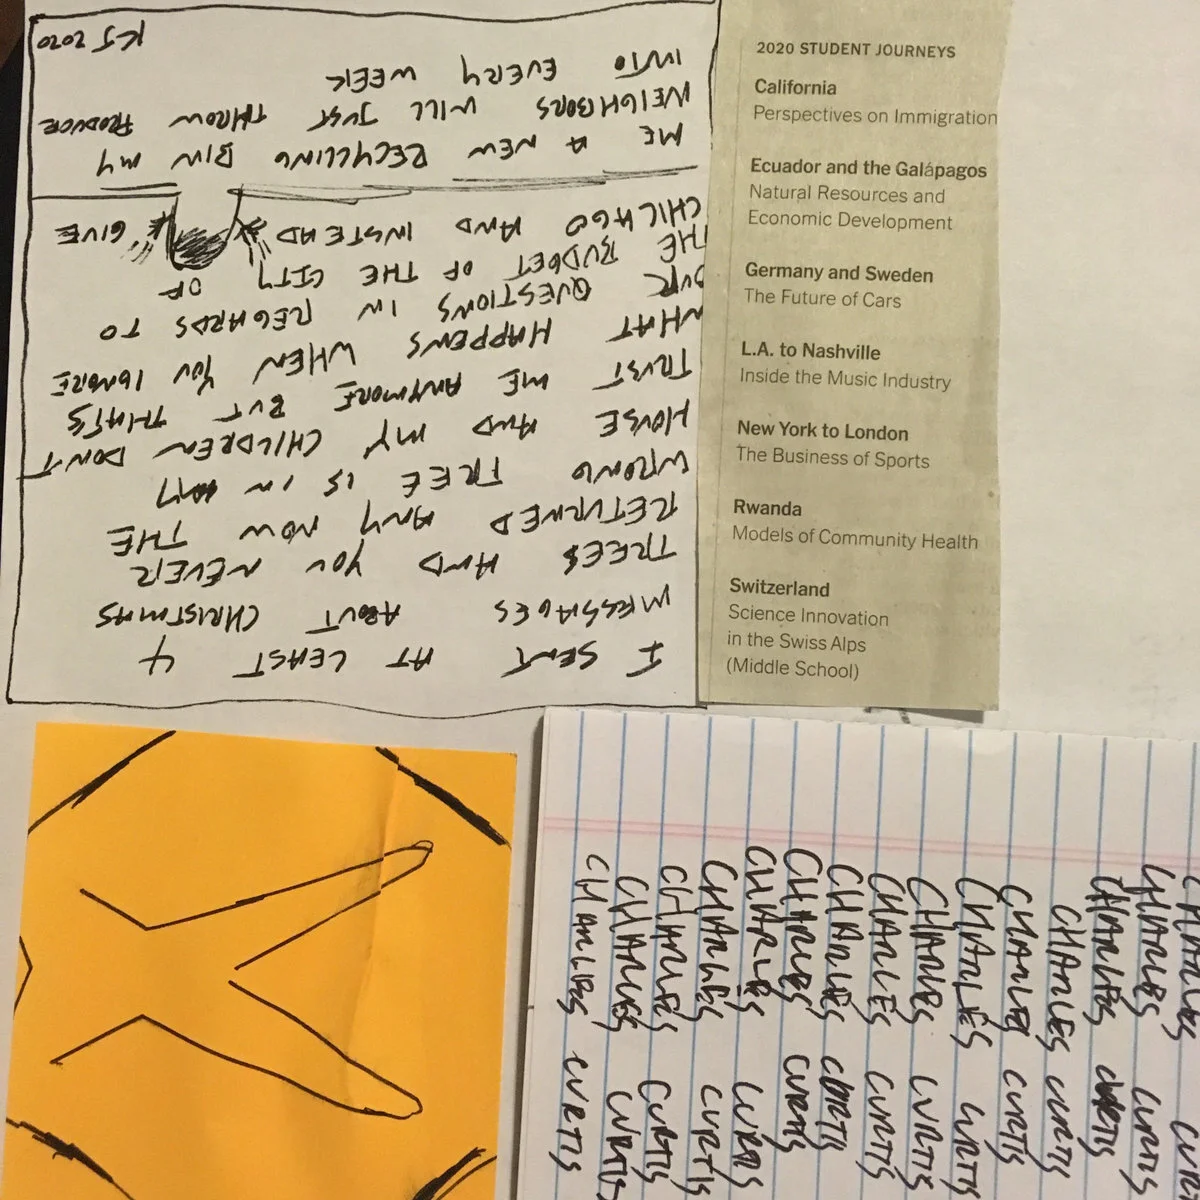 I SENT AT LEAST 4
MESSAGES ABOUT CHRISTMAS
TREES AND YOU NEVER
RETURNED ANY NOW THE
WRONG TREE IS IN MY
HOUSE AND MY CHILDREN DON'T
TRUST ME ANYMORE BUT THAT'S
WHAT HAPPENS WHEN YOU IGNORE
OUR QUESTIONS IN REGARDS TO
THE BUDGET OF THE CITY OF
CHICAGO AND INSTEAD GIVE
ME A NEW RECYCLING BIN MY
NEIGHBORS WILL JUST THROW PRODUCE
INTO EVERY WEEK
KJ 2020
2020 STUDENT JOURNEYS
California
Perspectives on Immigration
Ecuador and the Galápagos
Natural Resources and
Economic Development
Germany and Sweden
The Future of Cars
L.A. to Nashville
Inside the Music Industry
New York to London
The Business of Sports
Rwanda
Models of Community Health
Switzerland
Science Innovation
in the Swiss Alps
(Middle School)
CHARLES
CHARLES CURTIS
CHARLES CURTIS
CHARLES CURTIS
CHARLES CURTIS
CHARLES CURTIS
CHARLES CURTIS
CHARLES CURTIS
CHARLES CURTIS
CHARLES CURTIS
CHARLES CURTIS
CHARLES CURTIS
CHARLES CURTIS
CHARLES CURTIS
CHARLES CURTIS